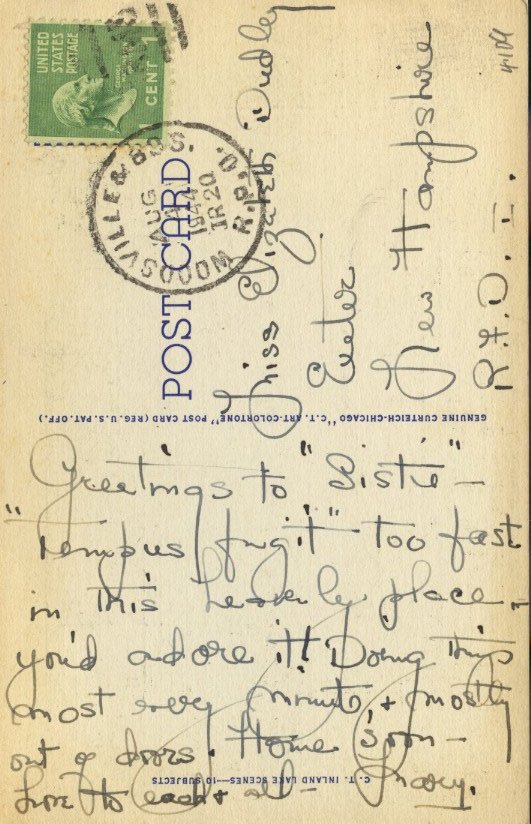 UNITED
STATES
POSTAGE
1
CENT
WOODSVILLE & BOS. R.P.O.
AUG
1944
TR 20
POST CARD
Miss Elizabeth Dudley
Exeter
New Hampshire
R.F.D. I.
GENUINE CURTEICH-CHICAGO "C.T. ART-COLORTONE" POST CARD (REG. U.S. PAT. OFF.)
Greetings to "Sistie" -
"Tempus fugit" too fast
in this heavenly place -
you'd adore it! Doing things
most every minute & mostly
out of doors. Home soon -
Love to each & all -
C. T. INLAND LAKE SCENES—10 SUBJECTS